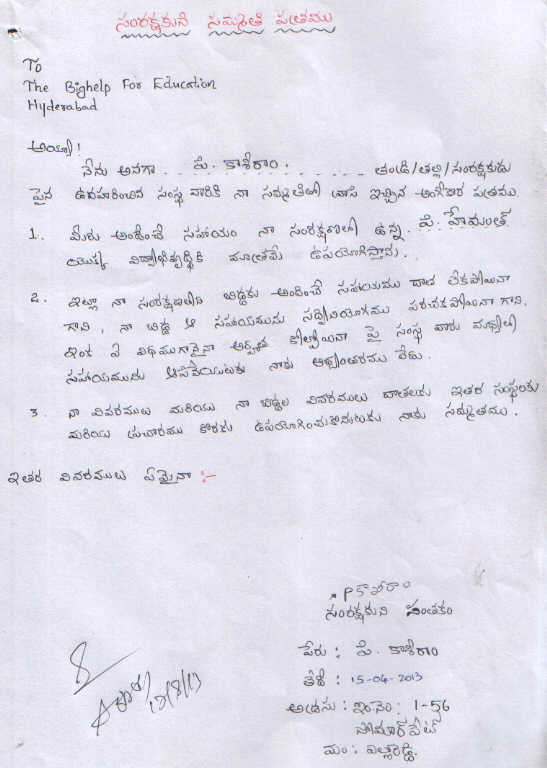 సంరక్షకుని సమ్మతి పత్రము
To
The Bighelp For Education
Hyderabad
అయ్యా!
నేను అనగా . . పి. కాశీరాం . . . . . . . తండ్రి/తల్లి/సంరక్షకుడు
పైన ఉదహరించిన సంస్థ వారికి నా సమ్మతితో వ్రాసి ఇచ్చిన అంగీకార పత్రము.
1. మీరు అందించే సహాయం నా సంరక్షణలో ఉన్న . పి. హేమంత్.
యొక్క విద్యాభివృద్ధికి మాత్రమే ఉపయోగిస్తాను.
2. ఇట్లా నా సంరక్షణలోని బిడ్డకు అందించే సహాయము వాడ లేకపోయినా
గాని, నా బిడ్డ ఆ సహాయమును సద్వినియోగము పరచకపోయినా గాని,
ఇంక ఏ విధముగానైనా అర్హత కోల్పోయినా పై సంస్థ వారు మధ్యలో
సహాయమును ఆపివేయుటకు నాకు అభ్యంతరము లేదు.
3. నా వివరములు మరియు నా బిడ్డల వివరములు దాతలకు ఇతర సంస్థలకు
మరియు ప్రచారము కొరకు ఉపయోగించుకొనుటకు నాకు సమ్మతము.
ఇతర వివరములు ఏమైనా :-
P కాశీరాం
సంరక్షకుని సంతకం
పేరు : పి. కాశీరాం
తేది : 15-04-2013
అడ్రసు : ఇం.నెం: 1-56
సోమార్‌పేట్
మం: ఎల్లారెడ్డి.